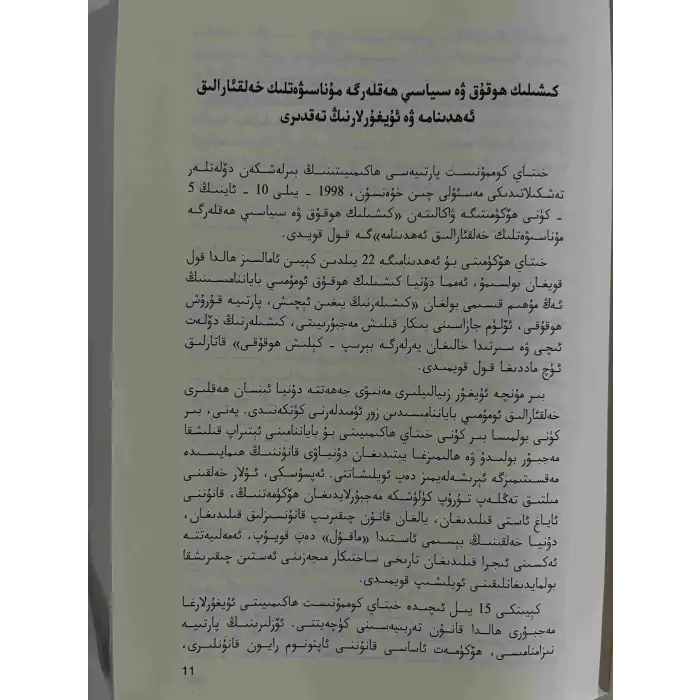 كىشىلىك ھوقۇق ۋە سىياسىي ھەقلەرگە مۇناسىۋەتلىك خەلقئارالىق
ئەھدىنامە ۋە ئۇيغۇرلارنىڭ تەقدىرى
خىتاي كوممۇنىست پارتىيەسى ھاكىمىيىتىنىڭ بىرلەشكەن دۆلەتلەر
تەشكىلاتىدىكى مەسئۇلى چىن خۇەنسۇن، 1998 - يىلى 10 - ئاينىڭ 5
- كۈنى ھۆكۈمىتىگە ۋاكالىتەن «كىشىلىك ھوقۇق ۋە سىياسىي ھەقلەرگە
مۇناسىۋەتلىك خەلقئارالىق ئەھدىنامە»گە قول قويدى.
خىتاي ھۆكۈمىتى بۇ ئەھدىنامىگە 22 يىلدىن كېيىن ئامالسىز ھالدا قول
قويغان بولسىمۇ، ئەمما دۇنيا كىشىلىك ھوقۇق ئومۇمىي باياننامىسىنىڭ
ئەڭ مۇھىم قىسىمى بولغان «كىشىلەرنىڭ يىغىن ئېچىش، پارتىيە قۇرۇش
ھوقۇقى، ئۆلۈم جازاسىنى بىكار قىلىش مەجبۇرىيىتى، كىشىلەرنىڭ دۆلەت
ئىچى ۋە سىرتىدا خالىغان يەرلەرگە بېرىپ - كېلىش ھوقۇقى» قاتارلىق
ئۈچ ماددىغا قول قويمىدى.
بىر مۇنچە ئۇيغۇر زىيالىيلىرى مەنىۋى جەھەتتە دۇنيا ئىنسان ھەقلىرى
خەلقئارالىق ئومۇمىي باياننامىسىدىن زور ئۈمىدلەرنى كۈتكەنىدى. يەنى، بىر
كۈنى بولمىسا بىر كۈنى خىتاي ھاكىمىيىتى بۇ باياننامىنى ئېتىراپ قىلىشقا
مەجبۇر بولىدۇ ۋە ھالىمىزغا يېتىدىغان دۇنياۋى قانۇننىڭ ھىمايىسىدە
مەقسىتىمىزگە ئېرىشەلەيمىز دەپ ئويلىشاتتى. ئەپسۇسكى، ئۇلار خەلقىنى
مىلتىق تەڭلەپ تۇرۇپ كۈلۈشكە مەجبۇرلايدىغان ھۆكۈمەتنىڭ، قانۇننى
ئاياغ ئاستى قىلىدىغان، يالغان قانۇن چىقىرىپ قانۇنسىزلىق قىلىدىغان،
دۇنيا خەلقىنىڭ بېسىمى ئاستىدا «ماقۇل» دەپ قويۇپ، ئەمەلىيەتتە
ئەكسىنى ئىجرا قىلىدىغان تارىخى ساختىكار مىجەزىنى ئەستىن چىقىرىشقا
بولمايدىغانلىقىنى ئويلىشىپ قويمىدى.
كېيىنكى 15 يىل ئىچىدە خىتاي كوممۇنىست ھاكىمىيىتى ئۇيغۇرلارغا
مەجبۇرى ھالدا قانۇن تەربىيەسىنى كۈچەيتتى. ئۆزلىرىنىڭ پارتىيە
نىزامنامىسى، ھۆكۈمەت ئاساسى قانۇنى ئاپتونوم رايون قانۇنلىرى،
11